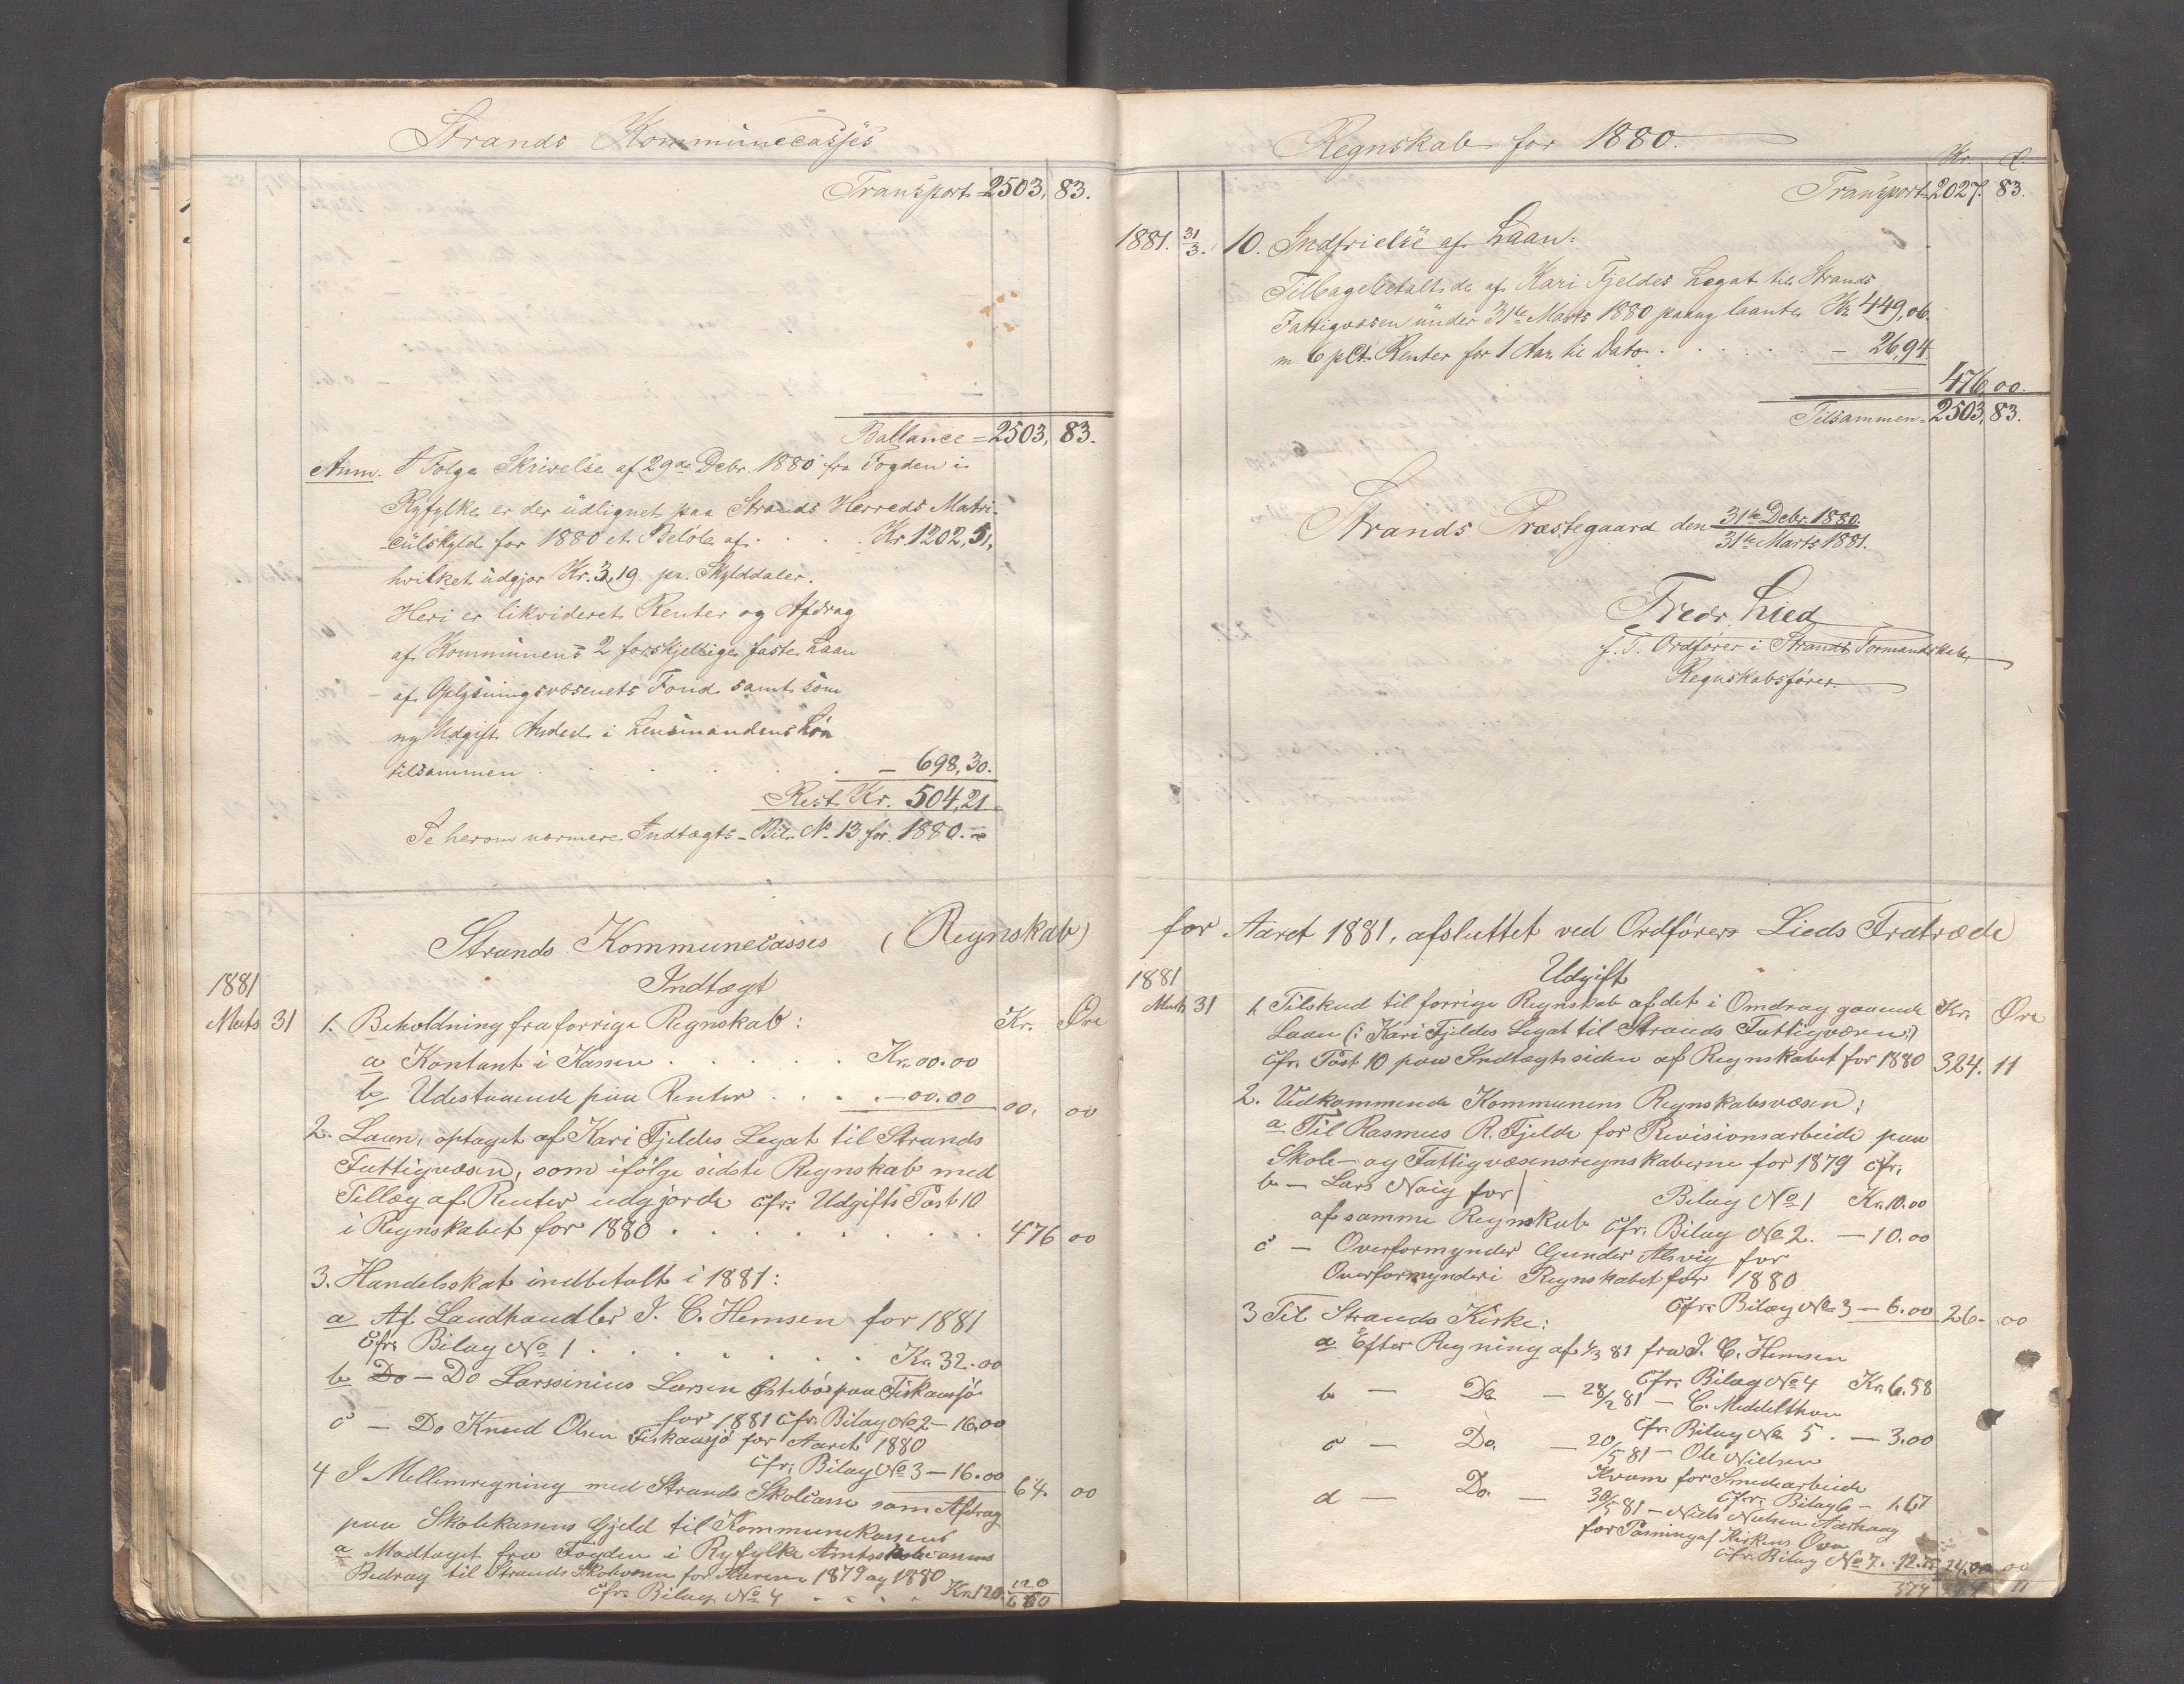 Strands Kommunecasses
Transport 2503, 83.
Ballance = 2503, 83.
Anm. I Følge Skrivelse af 29de Debr. 1880 fra Fogden i
Ryfylke er der udlignet paa Strands Herreds Matri-
culskyld for 1880 et Beløb af . . . . Kr. 1202,51,
hvilket udgjør Kr. 3,19 pr. Skylddaler.
Heri er likvideret Renter og Afdrag
af Kommunens 2 forskjellige faste Laan
af Oplysningsvæsenets Fond samt som
ny Udgift Andel i Lensmandens Løn
tilsammen . . . . . — 698,30.
Rest Kr. 504,21.
Se herom nærmere Indtægts-Bil. No. 13 for 1880.
Strands Kommunecasses (Regnskab)
1881 Indtægt
Marts 31 1. Beholdning fra forrige Regnskab: Kr. Øre
a Kontant i Kassen . . . . . Kr. 00.00
b Udestaaende paa Renter . . . — 00.00 00. 00
2. Laan, optaget af Kari Fjeldes Legat til Strands
Fattigvæsen, som ifølge sidste Regnskab med
Tillæg af Renter udgjorde cfr. Udgifts Post 10
i Regnskabet for 1880 . . . . . . . . . 476 00
3. Handelsskat indbetalt i 1881:
a Af Landhandler J. C. Hemsen for 1881
cfr. Bilag No 1 . . . . . . . Kr. 32.00
b Do — Do Larssinius Larsen Østebø paa Fiskaasjø
for 1881 cfr. Bilag No 2 — 16.00
c — Do Knud Olsen Fiskaasjø for Aaret 1880
cfr. Bilag No 3 — 16.00 64. 00
4 I Mellemregning med Strands Skolecasse som Afdrag
paa Skolekassens Gjeld til Kommunekassens
a Modtaget fra Fogden i Ryfylke Amtsskolecassens
Bidrag til Strands Skolvæsen for Aarene 1879 og 1880
cfr. Bilag No 4 . . . . Kr. 120. 120
Regnskab for 1880.
Kr. Ø.
Transport 2027. 83.
1881. 31/3. 10. Indfrielse af Laan:
Tilbagebetalt de af Kari Fjeldes Legat til Strands
Fattigvæsen under 31te Marts 1880 paany laante Kr. 449,06.
m 6 pCt. Renter for 1 Aar til Dato . . . . . . — 26,94
476,00.
Tilsammen = 2503,83.
Strands Præstegaard den 31te Debr. 1880.
31te Marts 1881.
Fredr. Lied
f. T. Ordfører i Strands Formandskab,
Regnskabsfører.
for Aaret 1881, afsluttet ved Ordfører Lieds Fratræde
1881 Udgift
Marts 31 1. Tilskud til forrige Regnskab af det i Omdrag gaaende Kr. Øre
Laan (: Kari Fjeldes Legat til Strands Fattigvæsen:)
cfr. Post 10 paa Indtægtssiden af Regnskabet for 1880 324. 11
2. Vedkommende Kommunens Regnskabsvæsen:
a Til Rasmus R. Fjelde for Revisionsarbeide paa
Skole- og Fattigvæsensregnskaberne for 1879 cfr.
Bilag No 1 Kr. 10.00
b — Lars Noig for
af samme Regnskab cfr. Bilag No 2. — 10.00
c — Overformynder Gunder Alsvig for
Overformynderi Regnskabet for 1880
cfr. Bilag No 3 — 6.00 26. 00
3 Til Strands Kirke:
a Efter Regning af 1/3 81 fra J. C. Hemsen
cfr. Bilag No 4 Kr. 6.58
b — Do — 28/2 81 — C. Middelthon
cfr. Bilag No 5 . — 3.00
c — Do. — 20/5 81 — Ole Nielsen
Kvam for Smedearbeide
cfr. Bilag 6 — 1.67
d — Do. — 30/5 81 — Niels Nielsen Aarhaug
for Pasning af Kirkens Ovn
cfr. Bilag No 7. 24,00 00
374 11